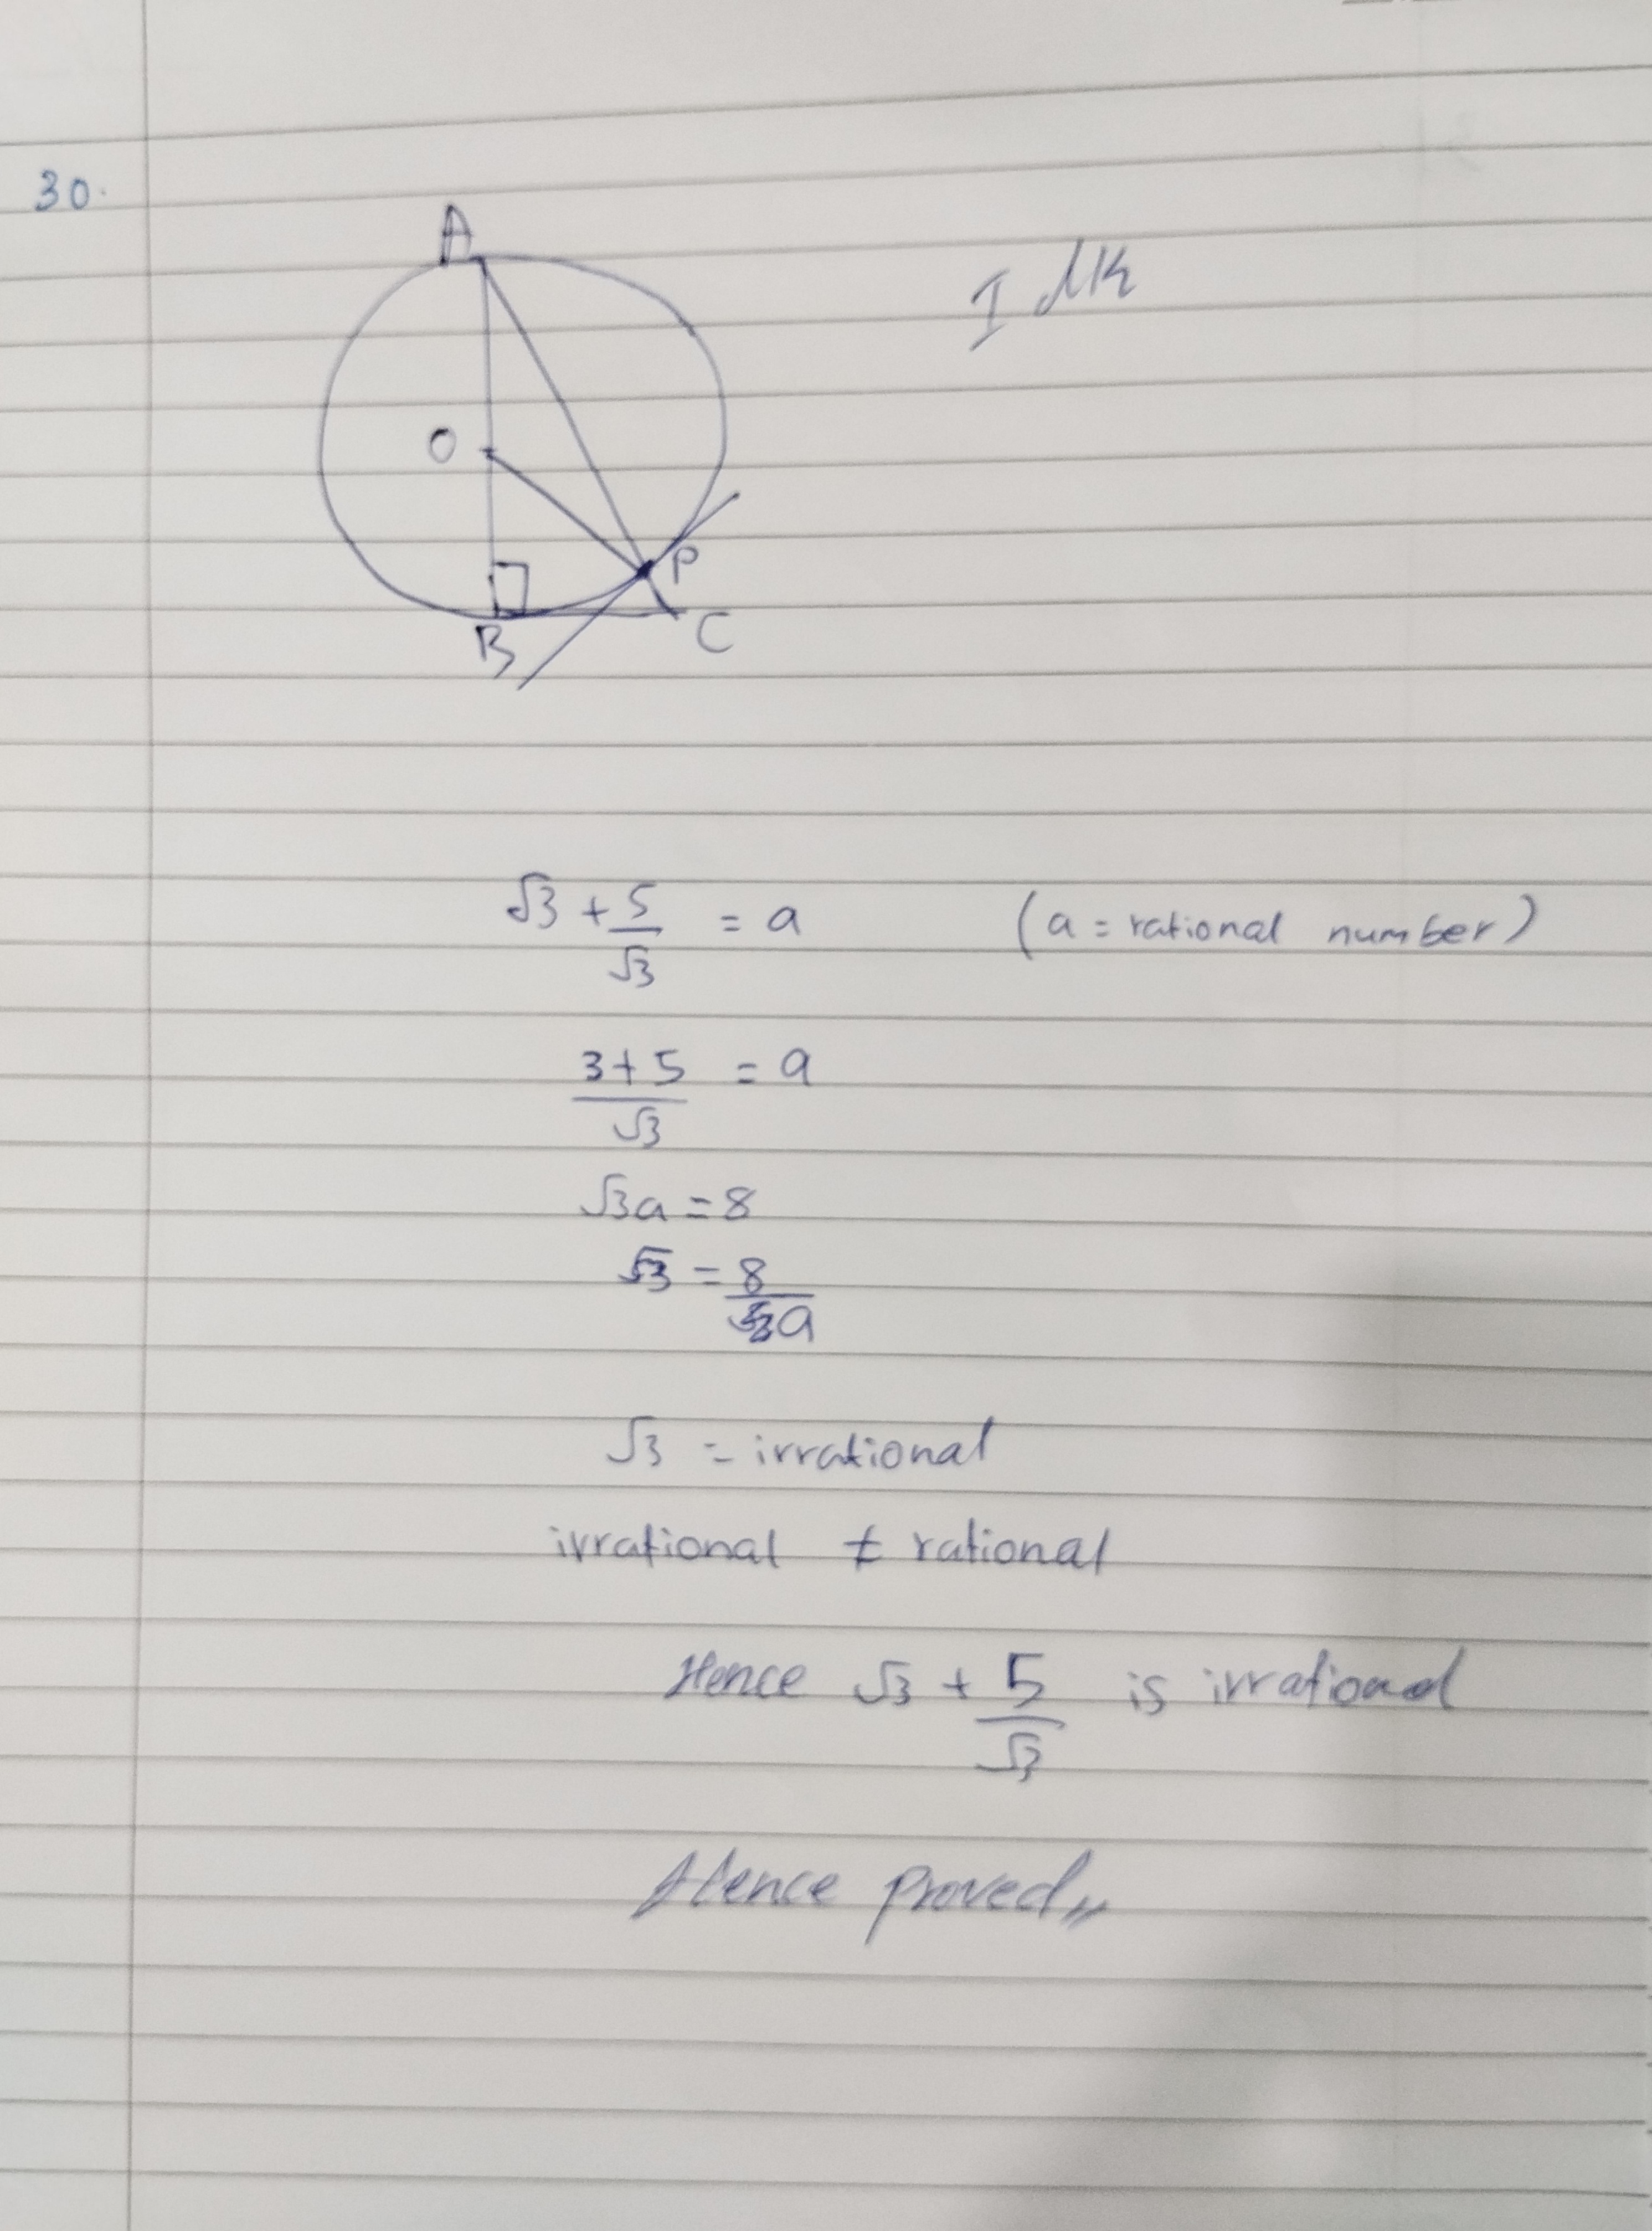 30.
A
I dk
O
P
B
C
√3 + 5/√3 = a (a = rational number)
3+5/√3 = a
√3a = 8
√3 = 8/a
√3 = irrational
irrational ≠ rational
Hence √3 + 5/√3 is irrational
Hence proved,,